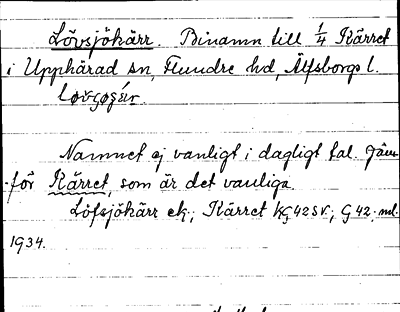 Lövsjökärr. Binamn till 1/4 Kärret
i Upphärad sn, Flundre hd, Älfsborgs l.
Namnet ej vanligt i dagligt tal. Jäm-
för Kärret, som är det vanliga.
Löfsjökärr ek; Kärret KG42SV; G42; ml.
1934.